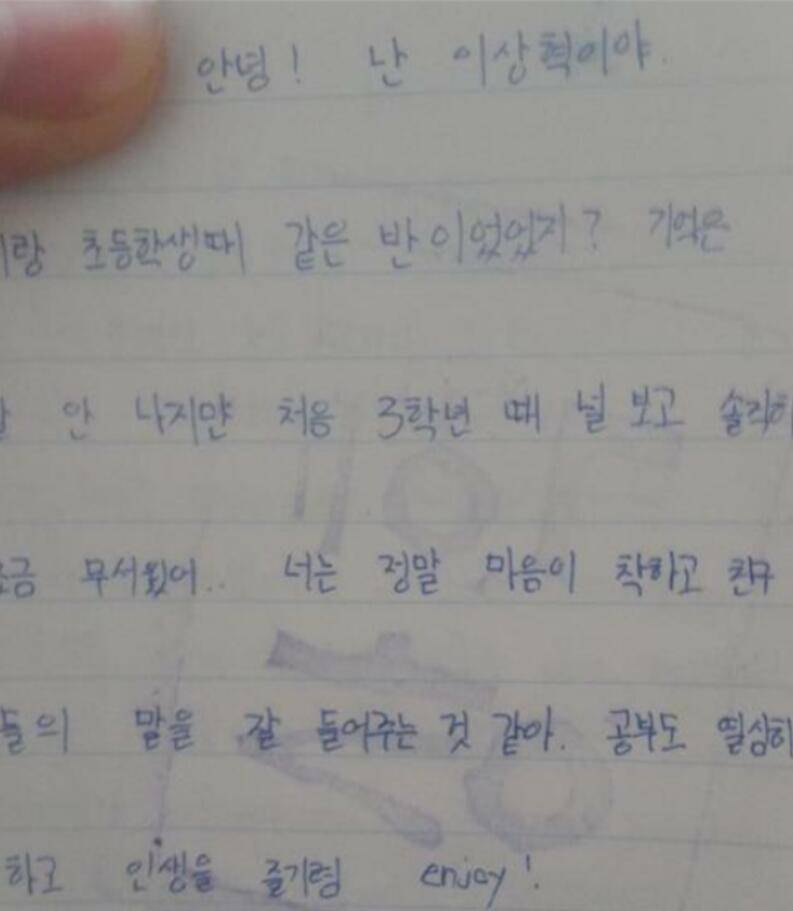 안녕! 난 이상혁이야.
랑 초등학생때 같은 반이었었지? 기억은
안 나지만 처음 3학년 때 널 보고 솔직히
금 무서웠어.. 너는 정말 마음이 착하고 친구
들의 말을 잘 들어주는 것 같아. 공부도 열심히
하고 인생을 즐기렴 enjoy!